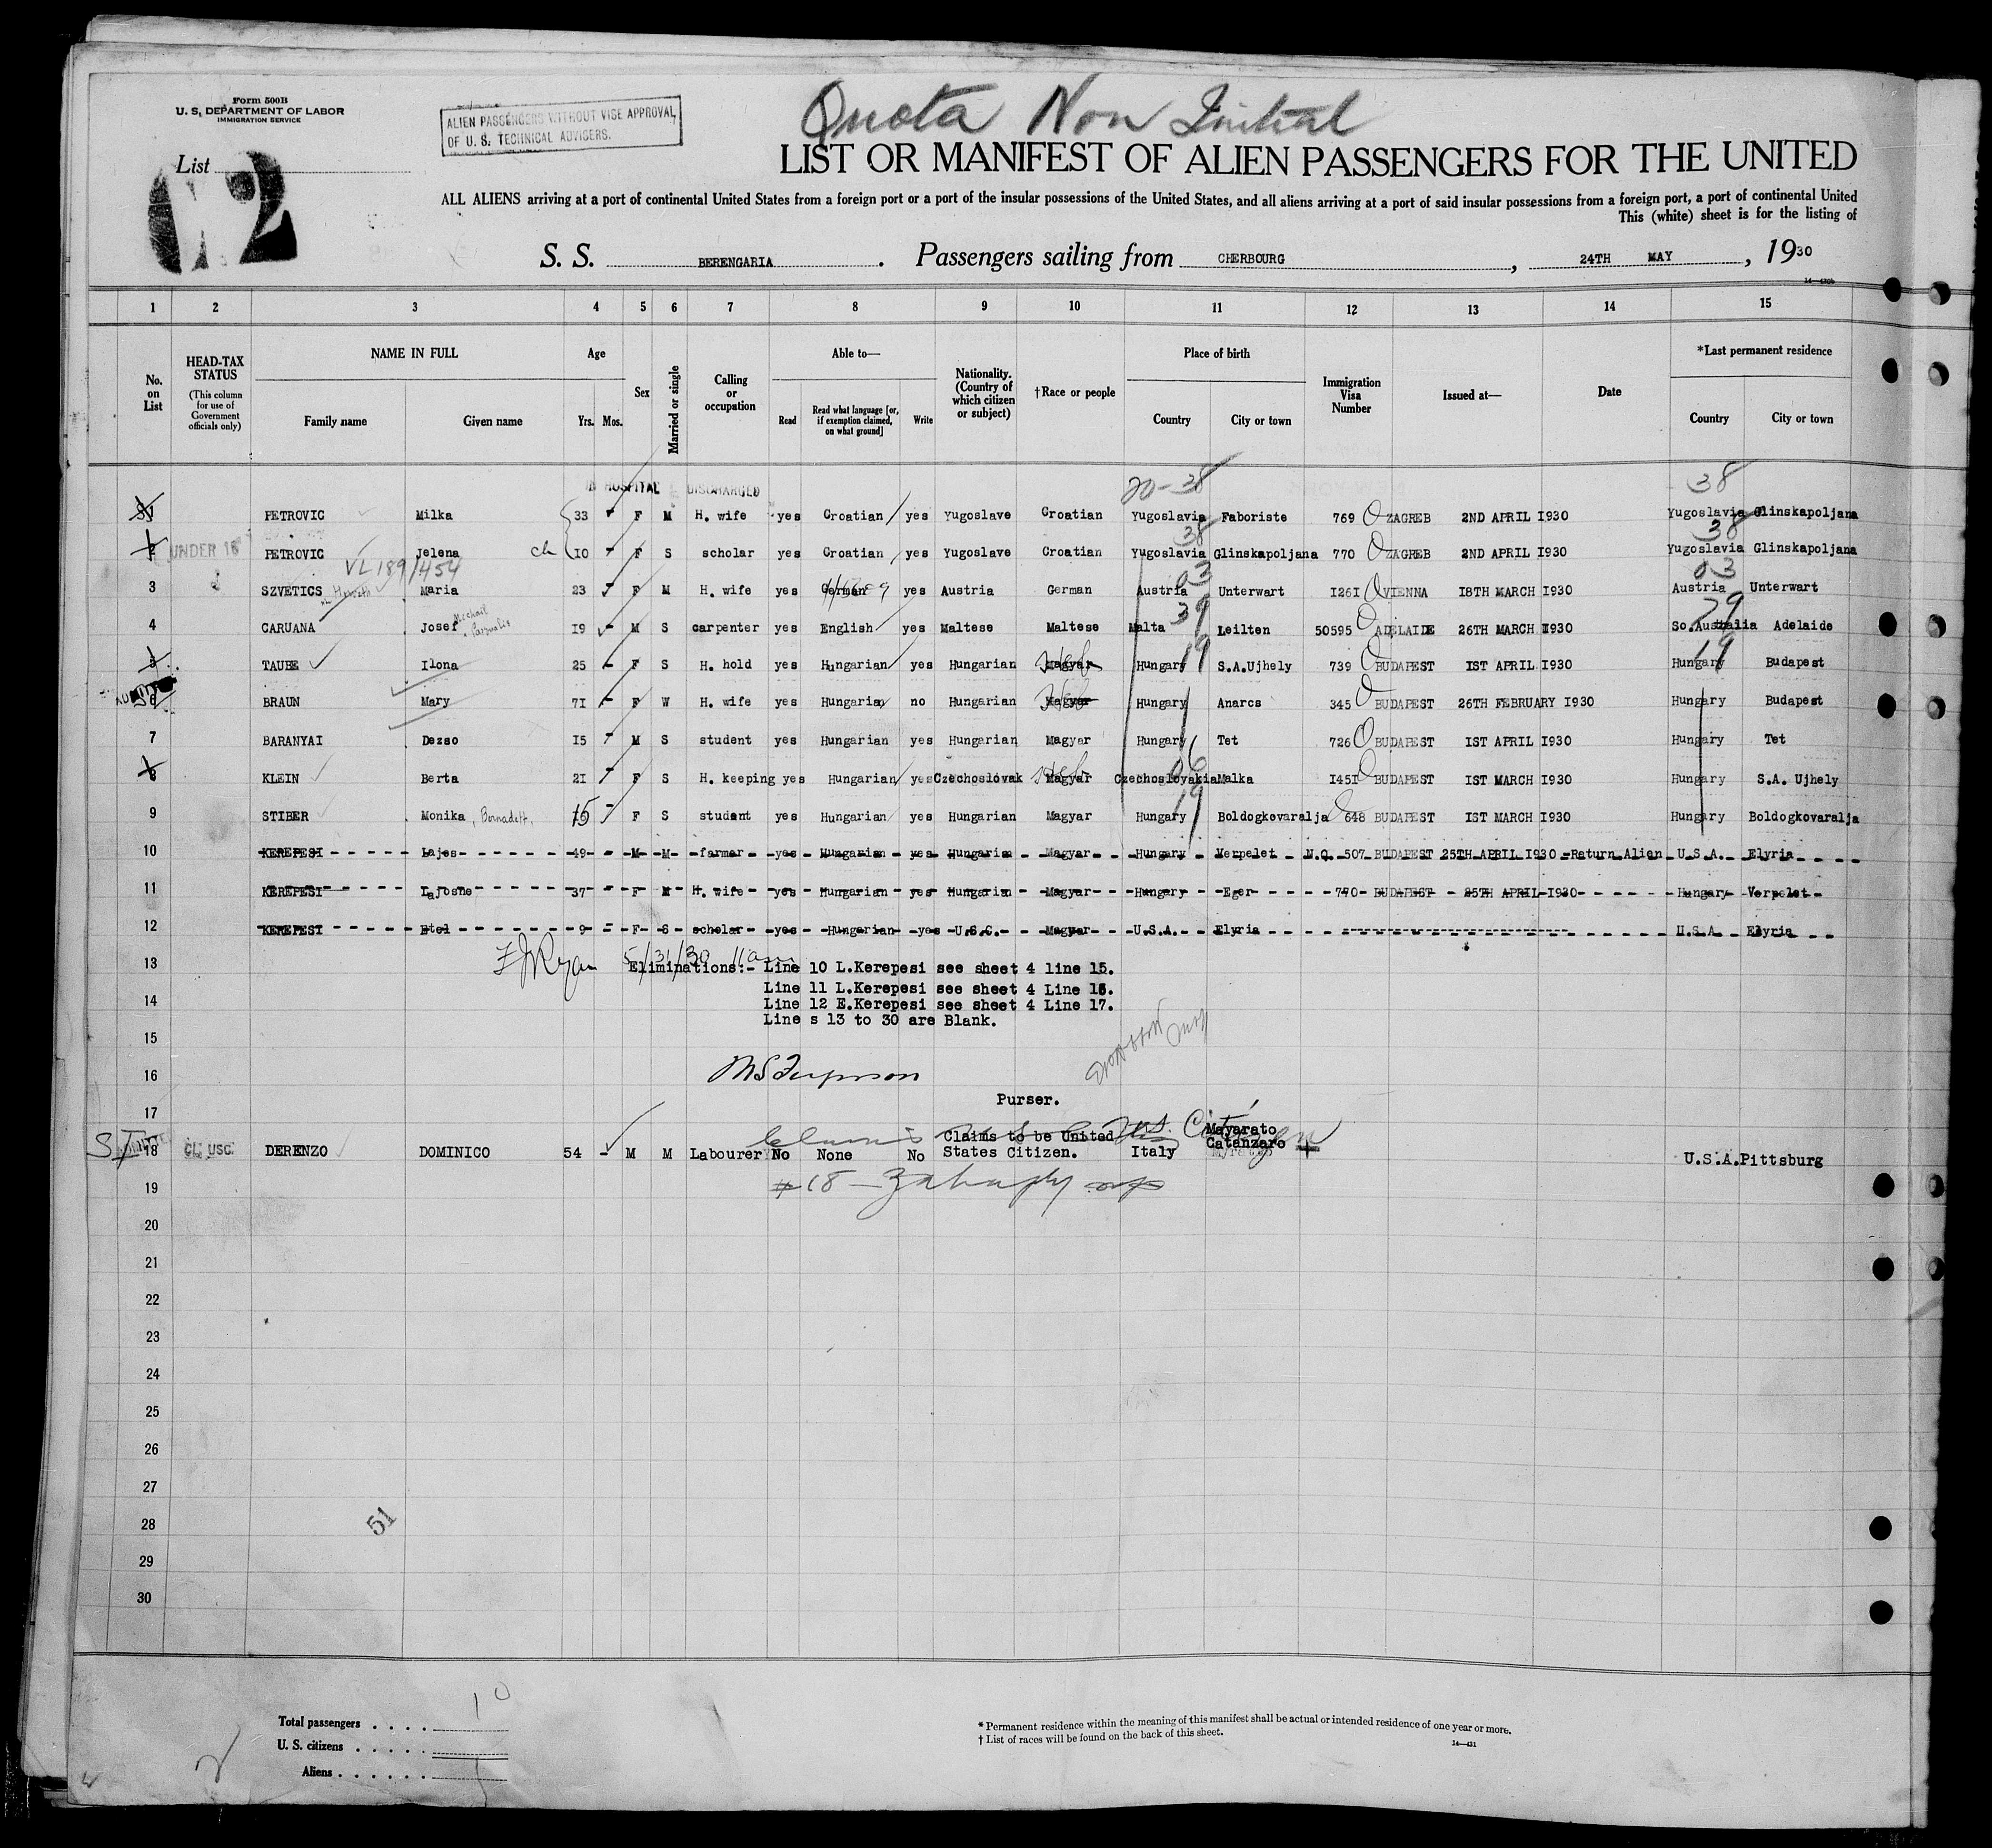 Quota Non Initial
Form 500B
U. S. DEPARTMENT OF LABOR
IMMIGRATION SERVICE
ALIEN PASSENGERS WITHOUT VISE APPROVAL
OF U. S. TECHNICAL ADVISERS.
List
2
LIST OR MANIFEST OF ALIEN PASSENGERS FOR THE UNITED
ALL ALIENS arriving at a port of continental United States from a foreign port or a port of the insular possessions of the United States, and all aliens arriving at a port of said insular possessions from a foreign port, a port of continental United
This (white) sheet is for the listing of
S. S. BERENGARIA . Passengers sailing from CHERBOURG , 24TH MAY , 1930
1 2 3 4 5 6 7 8 9 10 11 12 13 14 15
No. on List
HEAD-TAX STATUS (This column for use of Government officials only)
NAME IN FULL Family name Given name
Age Yrs. Mos.
Sex
Married or single
Calling or occupation
Able to— Read Read what language [or, if exemption claimed, on what ground] Write
Nationality. (Country of which citizen or subject)
†Race or people
Place of birth Country City or town
Immigration Visa Number
Issued at—
Date
*Last permanent residence Country City or town
IN HOSPITAL DISCHARGED
20-38 38
1 PETROVIC Milka 33 - F M H. wife yes Croatian yes Yugoslave Croatian Yugoslavia Faboriste 769 ZAGREB 2ND APRIL I930 Yugoslavia Glinskapoljana
38 38
2 UNDER 16 PETROVIC Jelena ch IO - F S scholar yes Croatian yes Yugoslave Croatian Yugoslavia Glinskapoljana 770 ZAGREB 2ND APRIL I930 Yugoslavia Glinskapoljana
VL 189/454
03 03
3 SZVETICS Maria 23 - F M H. wife yes German yes Austria German Austria Unterwart I26I VIENNA I8TH MARCH I930 Austria Unterwart
39 29
4 CARUANA Josef I9 - M S carpenter yes English yes Maltese Maltese Malta Leilten 50595 ADELAIDE 26TH MARCH I930 So.Australia Adelaide
5 TAUBE Ilona 25 - F S H. hold yes Hungarian yes Hungarian Magyar Heb Hungary 19 S.A.Ujhely 739 BUDAPEST IST APRIL I930 Hungary 19 Budapest
6 BRAUN Mary 7I - F W H. wife yes Hungarian no Hungarian Magyar Heb Hungary Anarcs 345 BUDAPEST 26TH FEBRUARY I930 Hungary Budapest
7 BARANYAI Dezso I5 - M S student yes Hungarian yes Hungarian Magyar Hungary Tet 726 BUDAPEST IST APRIL I930 Hungary Tet
8 KLEIN Berta 2I - F S H. keeping yes Hungarian yes Czechoslovak Magyar Heb Czechoslovakia 06 Malka I45I BUDAPEST IST MARCH I930 Hungary S.A. Ujhely
9 STIBER Monika, Bernadett, 15 - F S student yes Hungarian yes Hungarian Magyar Hungary 19 Boldogkovaralja 648 BUDAPEST IST MARCH I930 Hungary Boldogkovaralja
10 KEREPESI Lajos 49 M M farmer yes Hungarian yes Hungarian Magyar Hungary Verpelet N.Q. 507 BUDAPEST 25TH APRIL I930 Return Alien U.S.A. Elyria
11 KEREPESI Lajosne 37 F M H. wife yes Hungarian yes Hungarian Magyar Hungary Eger 770 BUDAPEST 25TH APRIL I930 Hungary Verpelet
12 KEREPESI Etel 9 F S scholar yes Hungarian yes U.S.C. Magyar U.S.A. Elyria U.S.A. Elyria
FJRyan 5/31/30 11am
13 Eliminations:- Line 10 L.Kerepesi see sheet 4 line 15.
Line 11 L.Kerepesi see sheet 4 Line 16.
14 Line 12 E.Kerepesi see sheet 4 Line 17.
Line s 13 to 30 are Blank.
15
16
Purser.
17
Claims U.S. Citizen
18 SI ADMITTED CL. USC. DERENZO DOMINICO 54 - M M Labourer No None No Claims to be United States Citizen. Italy Mayarato Catanzaro U.S.A. Pittsburg
#18
19
20
21
22
23
24
25
26
27
28
51
29
30
Total passengers . . . . 10
U. S. citizens . . . . .
Aliens . . . . . .
* Permanent residence within the meaning of this manifest shall be actual or intended residence of one year or more.
† List of races will be found on the back of this sheet.
14—431